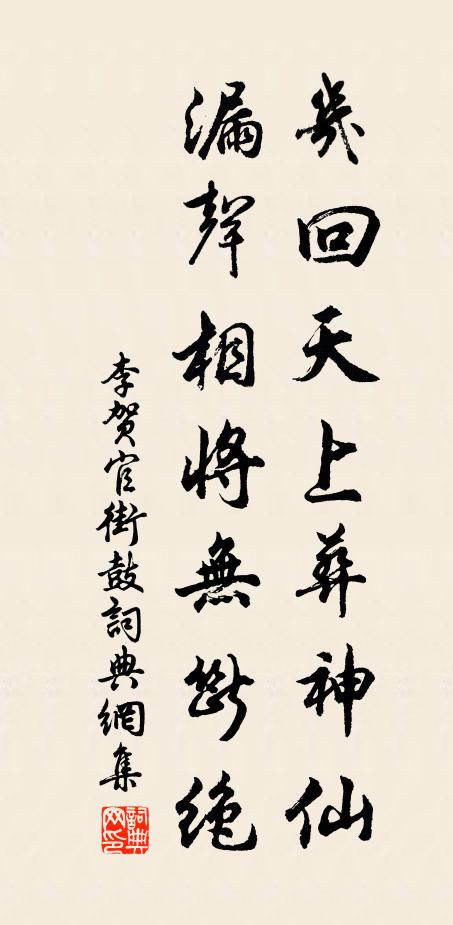 幾回天上葬神仙
漏聲相將無斷絶
李賀官街鼓詞典網集
詞典網印